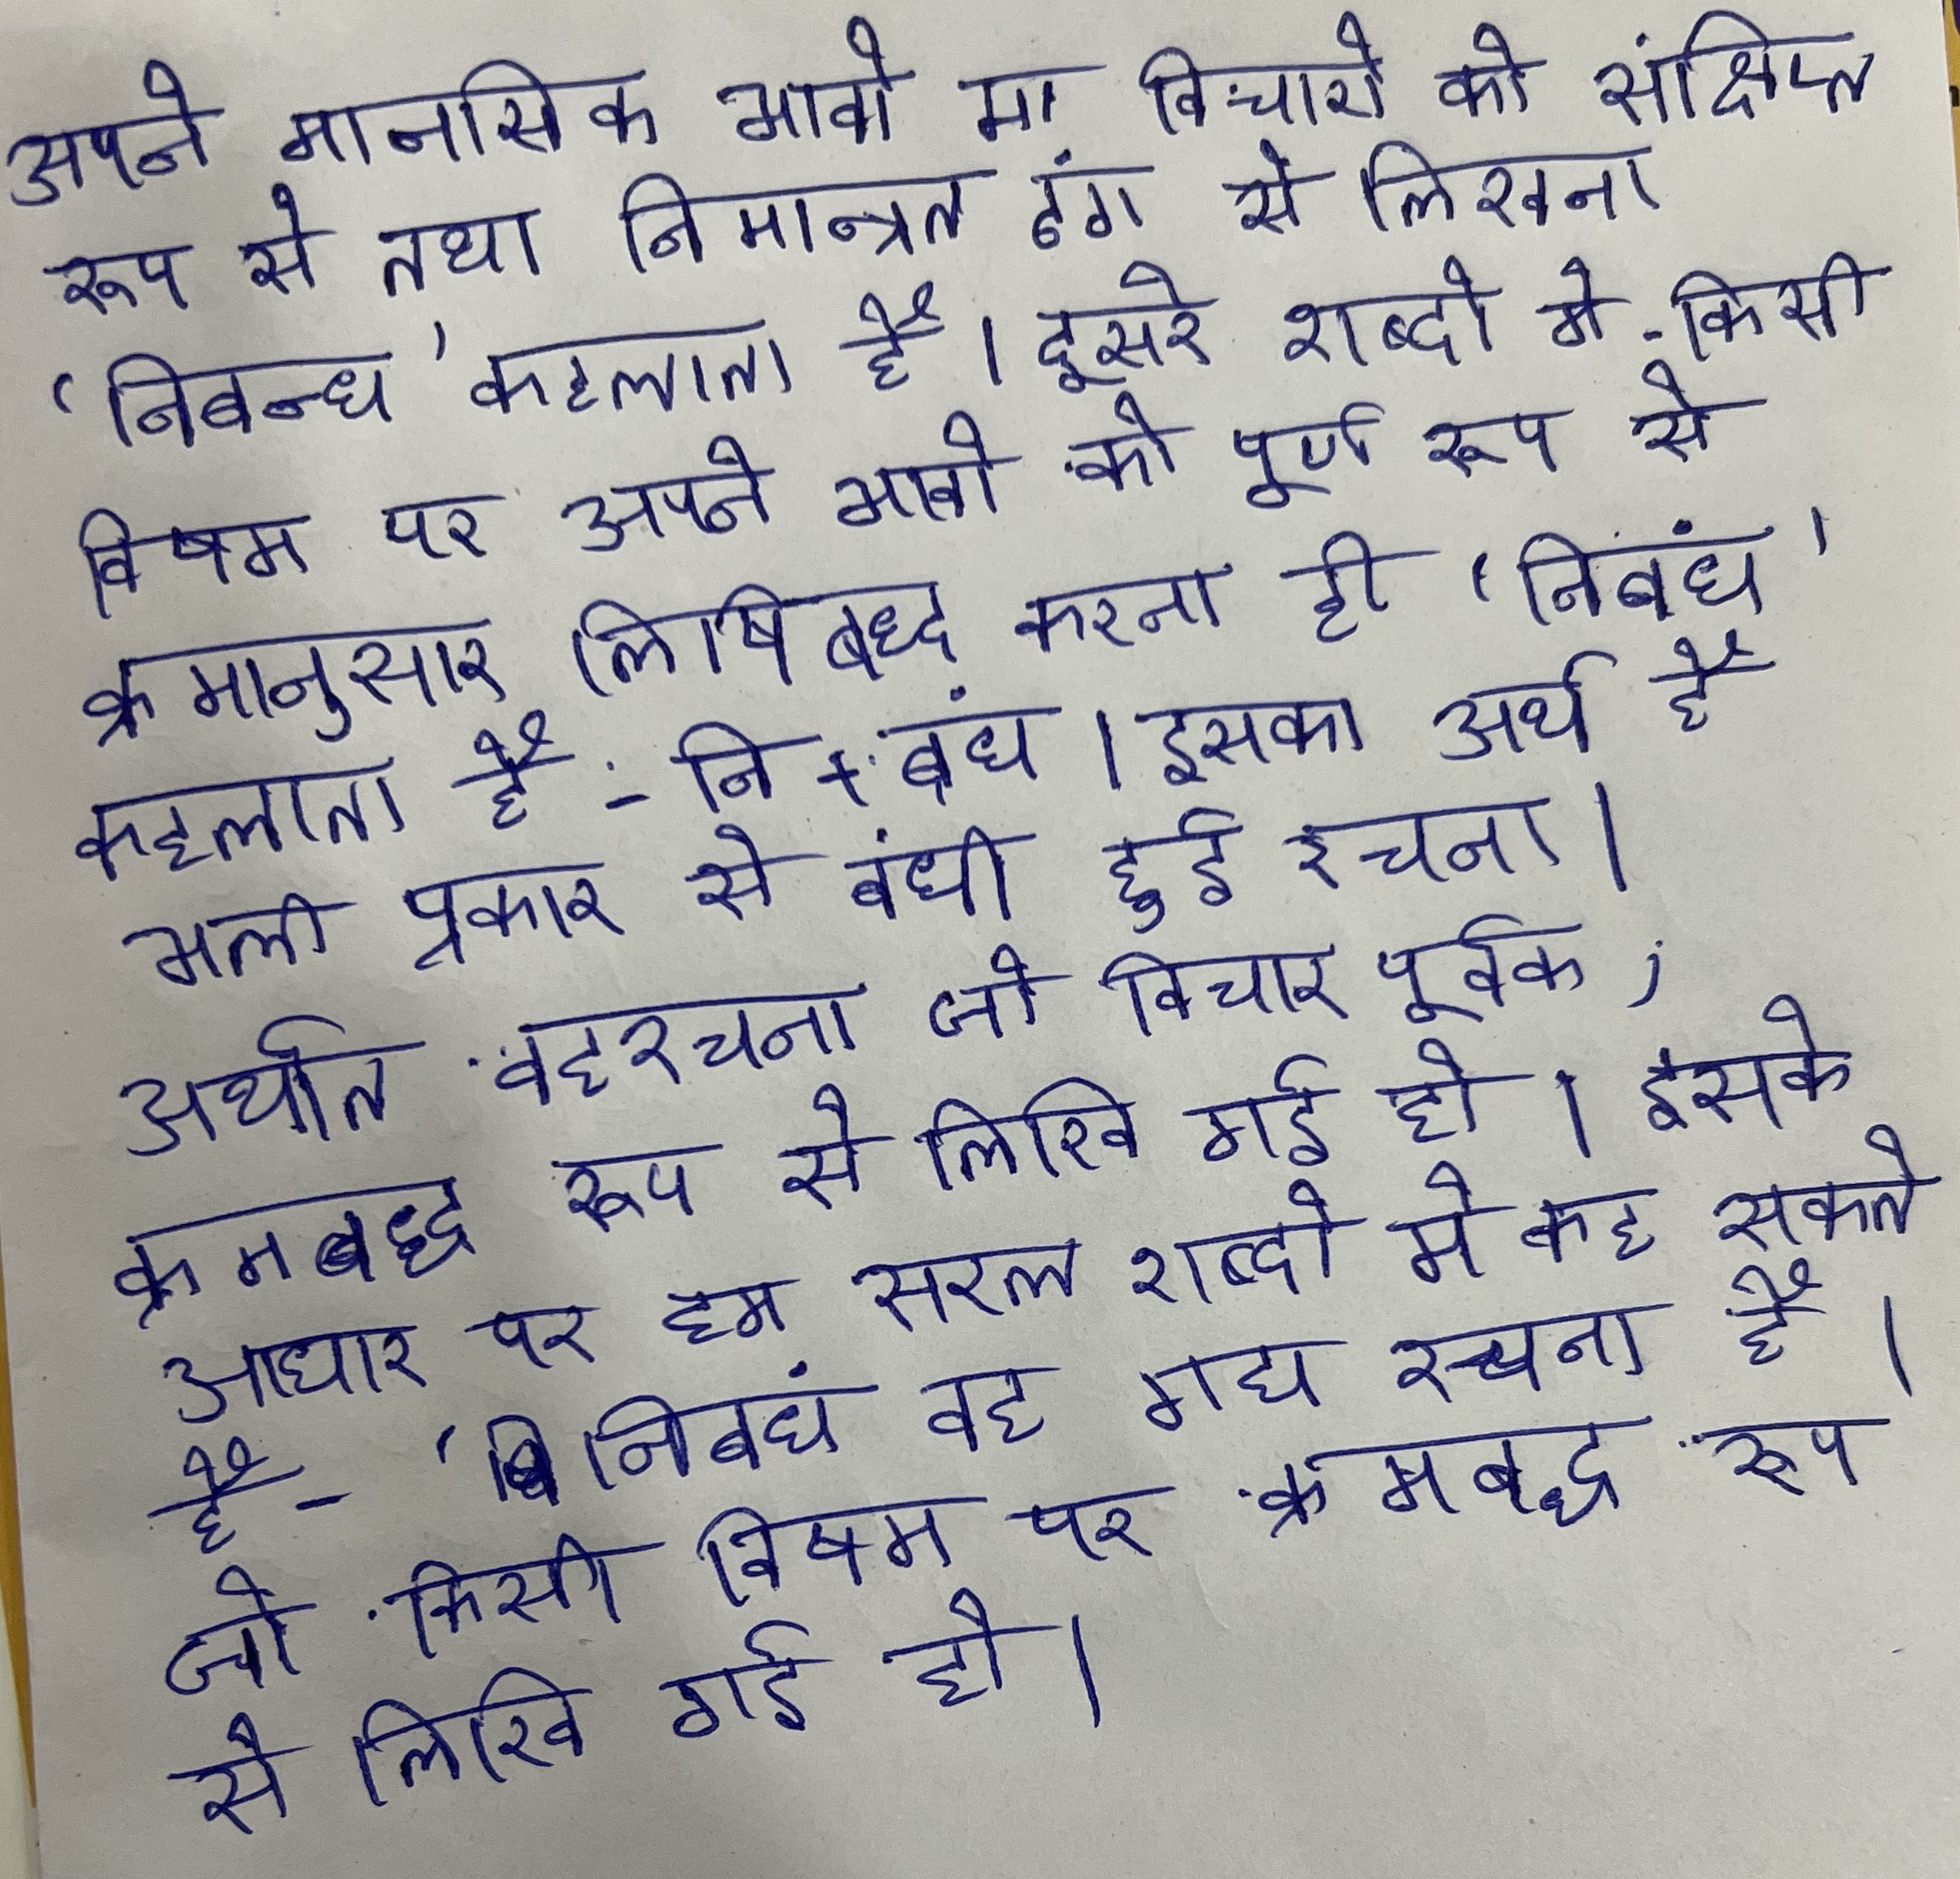 अपने मानसिक भावो या विचारो को संक्षिप्त
रूप से तथा नियान्त्रत ढंग से लिखना
'निबन्ध' कहलाता है । दूसरे शब्दो मे - किसी
विषय पर अपने भावो को पूर्ण रूप से
क्रमानुसार लिपिबध्द करना ही 'निबंध'
कहलाता है :- नि + बंध । इसका अर्थ है
भली प्रकार से बंधी हुई रचना ।
अर्थात वह रचना जो विचार पूर्वक ,
क्रमबद्ध रूप से लिखि गई हो । इसके
आधार पर हम सरल शब्दो मे कह सकते
है - 'निबधं वह गद्य रचना है ।
जो किसी विषय पर क्रमबद्ध रूप
से लिखि गई हो ।